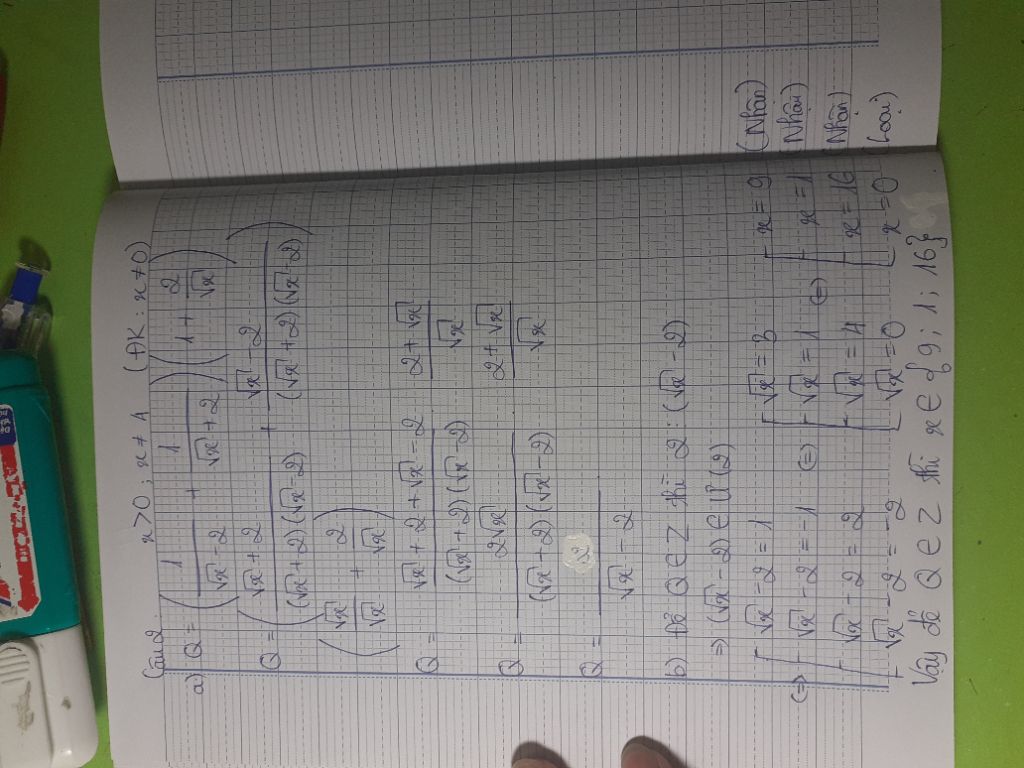 Câu 2: x > 0; x ≠ 4 (ĐK: x ≠ 0)
a) Q = (1/(√x - 2) + 1/(√x + 2))(1 + 2/√x)
Q = ((√x + 2)/((√x + 2)(√x - 2)) + (√x - 2)/((√x + 2)(√x - 2)))
(√x/√x + 2/√x)
Q = (√x + 2 + √x - 2)/((√x + 2)(√x - 2)) · (2 + √x)/√x
Q = 2√x/((√x + 2)(√x - 2)) · (2 + √x)/√x
Q = 2/(√x - 2)
b) Để Q ∈ Z thì 2 : (√x - 2)
⇒ (√x - 2) ∈ Ư(2)
⇔ [ √x - 2 = 1 [ √x = 3 [ x = 9 (Nhận)
[ √x - 2 = -1 ⇔ [ √x = 1 ⇔ [ x = 1 (Nhận)
[ √x - 2 = 2 [ √x = 4 [ x = 16 (Nhận)
[ √x - 2 = -2 [ √x = 0 [ x = 0 (Loại)
Vậy để Q ∈ Z thì x ∈ {9; 1; 16}